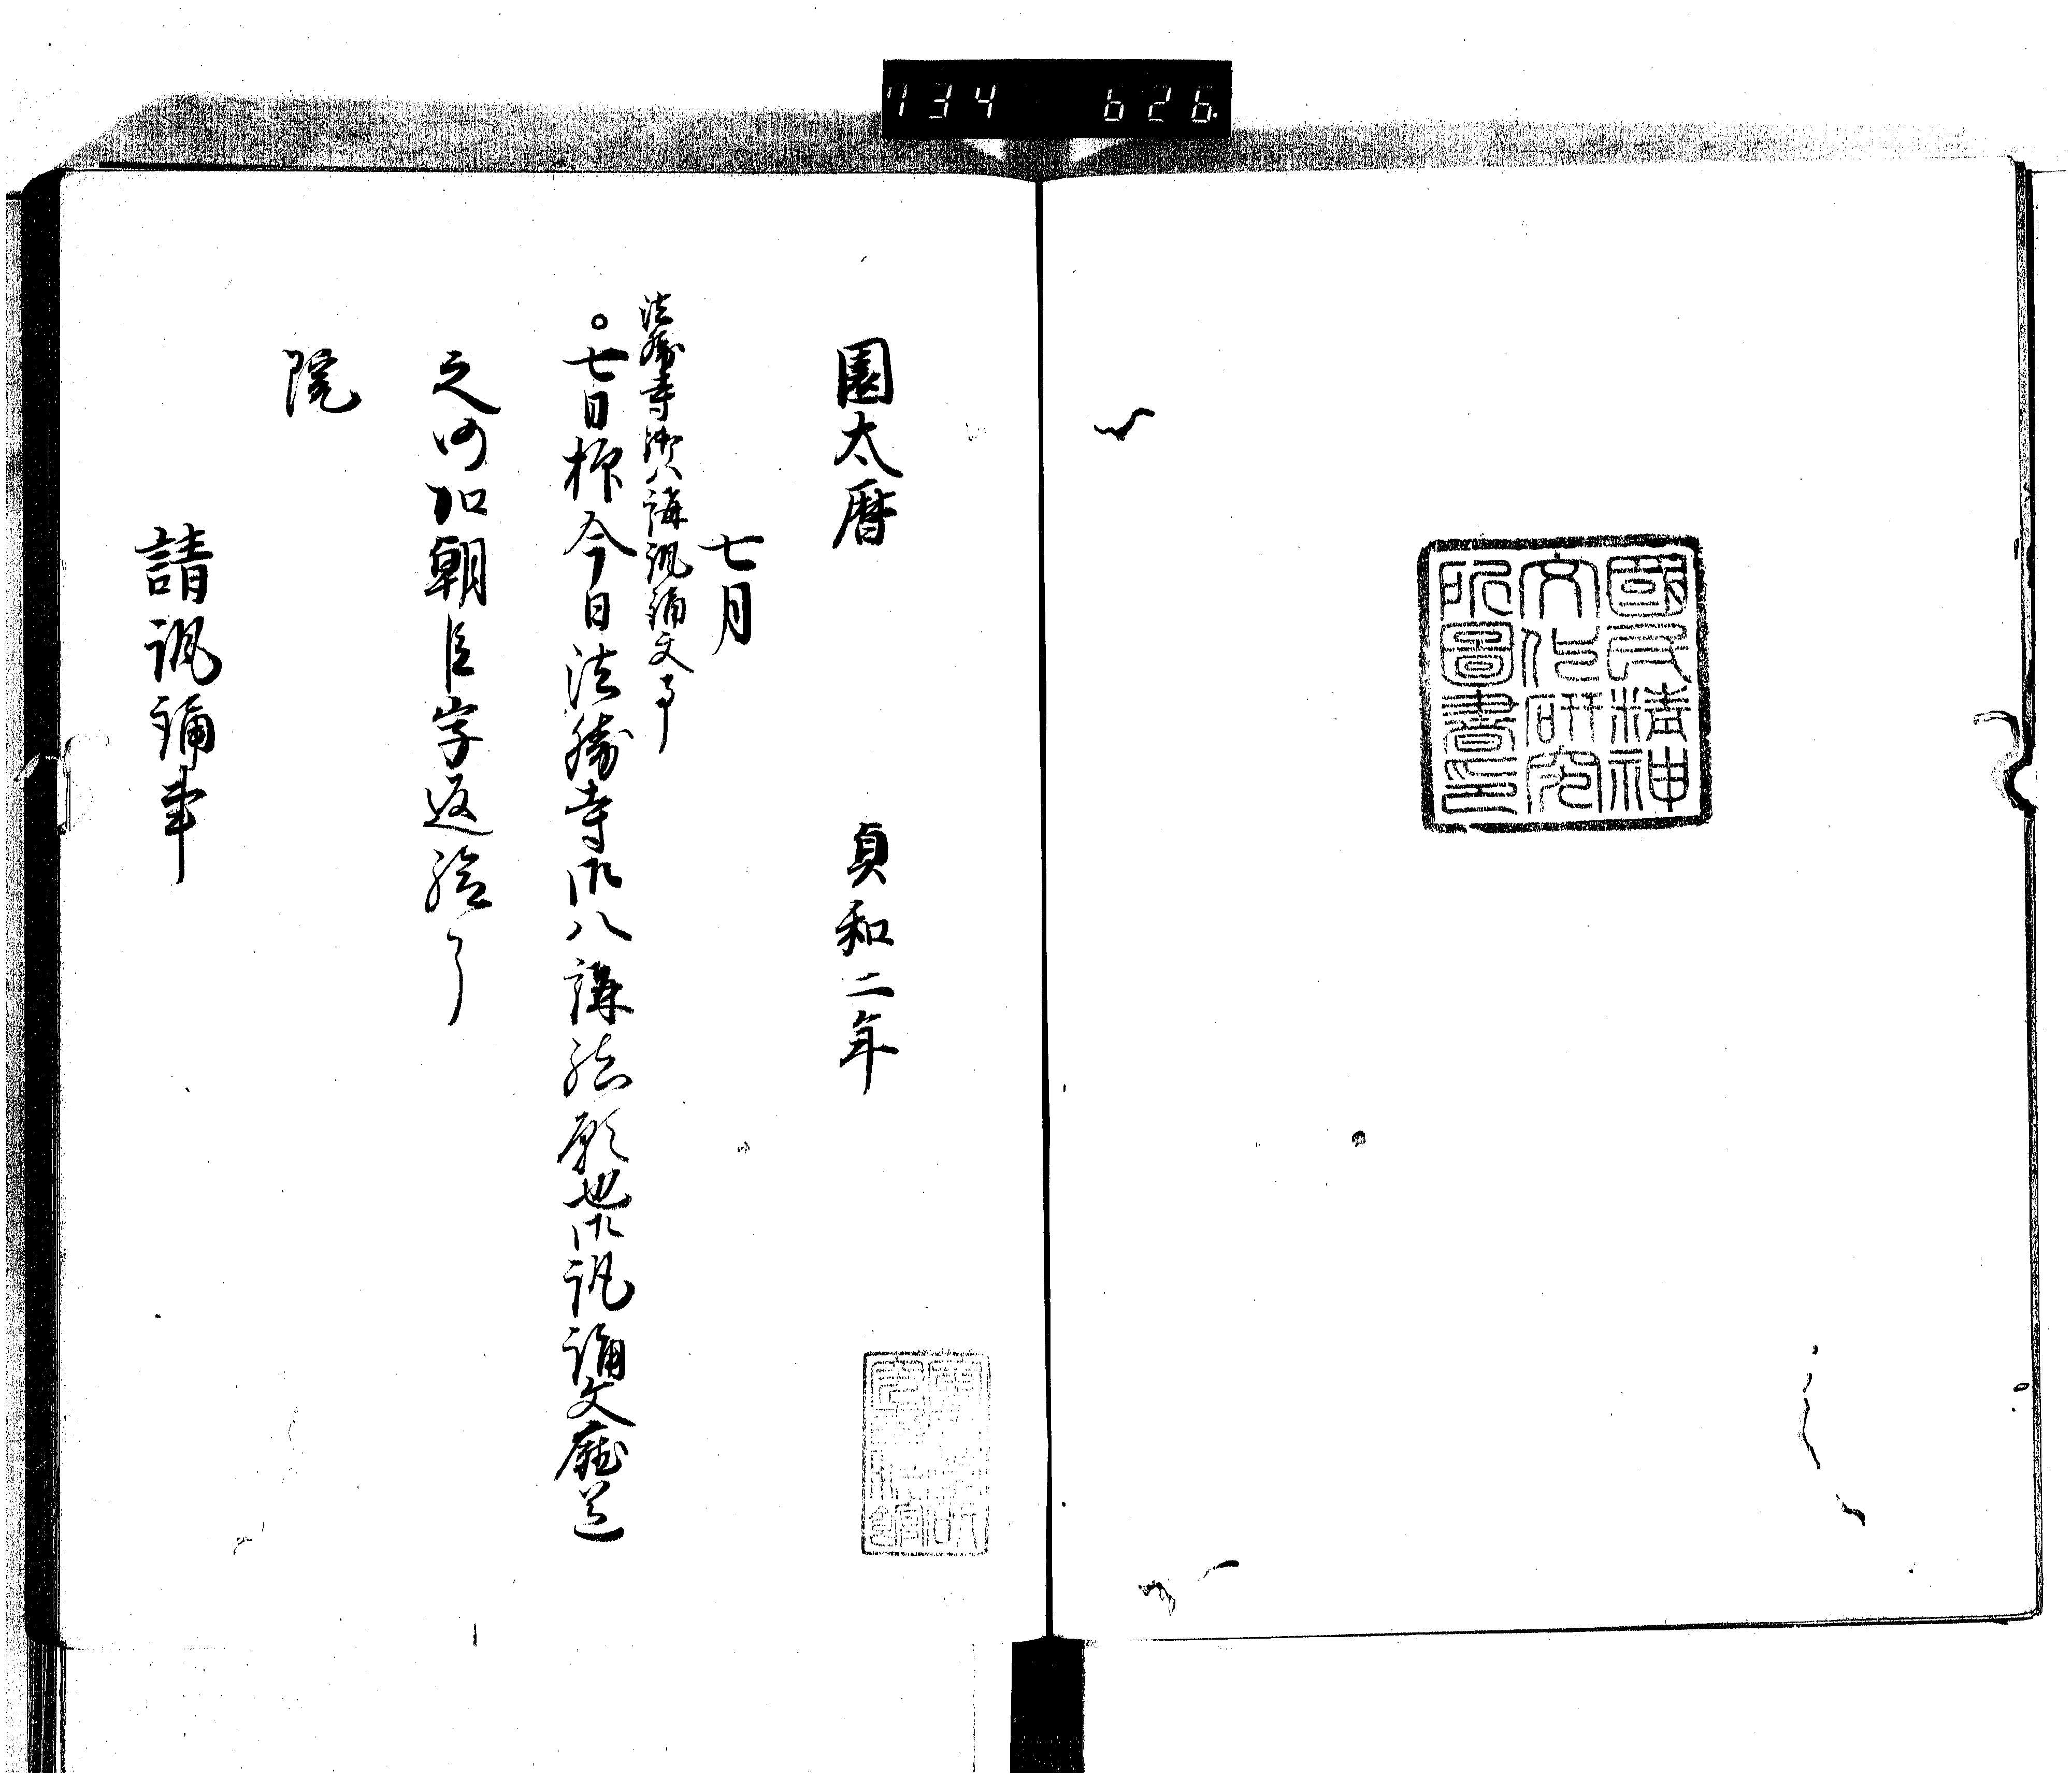 734 626
國民精神
文化研究
所圖書印
園太暦 貞和二年
七月
法勝寺御八講諷誦文事
。七日抑今日法勝寺御八講結願也御諷誦文廳送
之仍加朝臣字返給了
院
請諷誦事